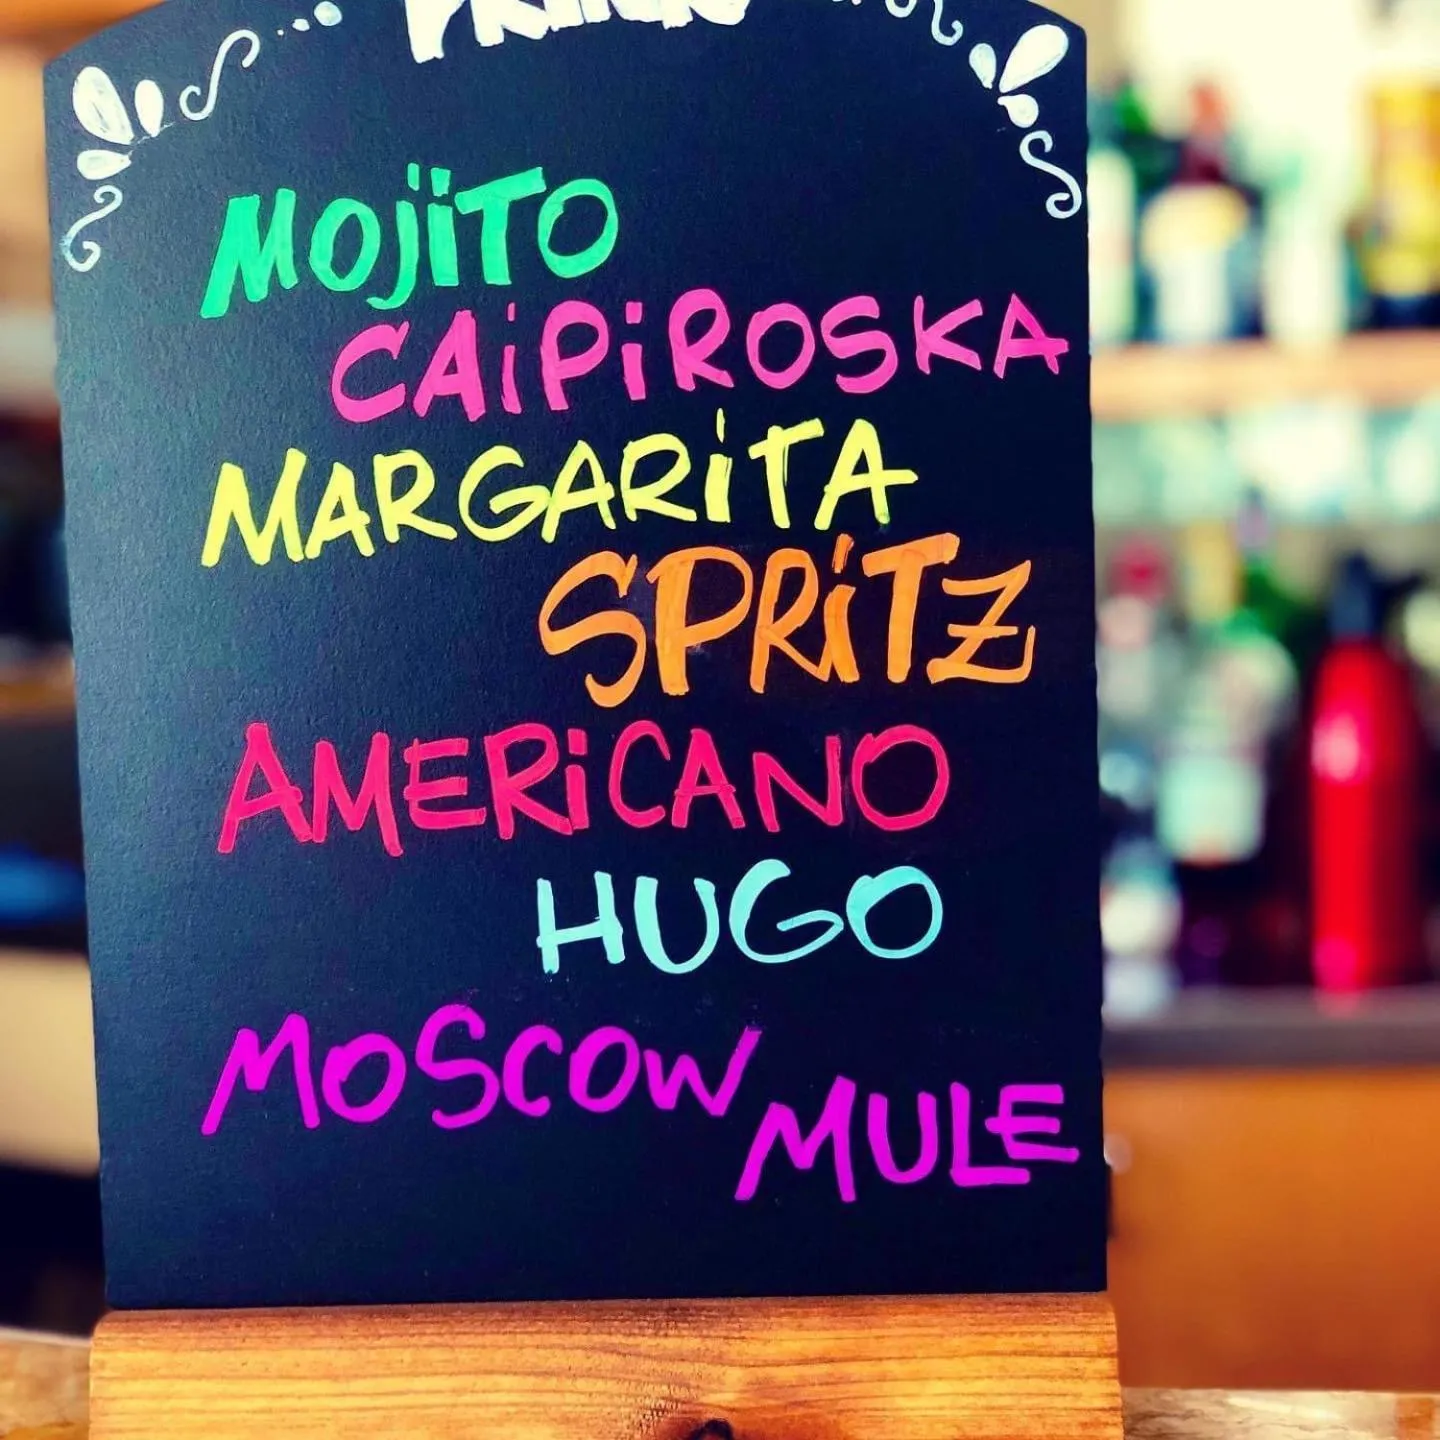 MOJITO
CAIPIROSKA
MARGARITA
SPRITZ
AMERICANO
HUGO
MOSCOW
MULE